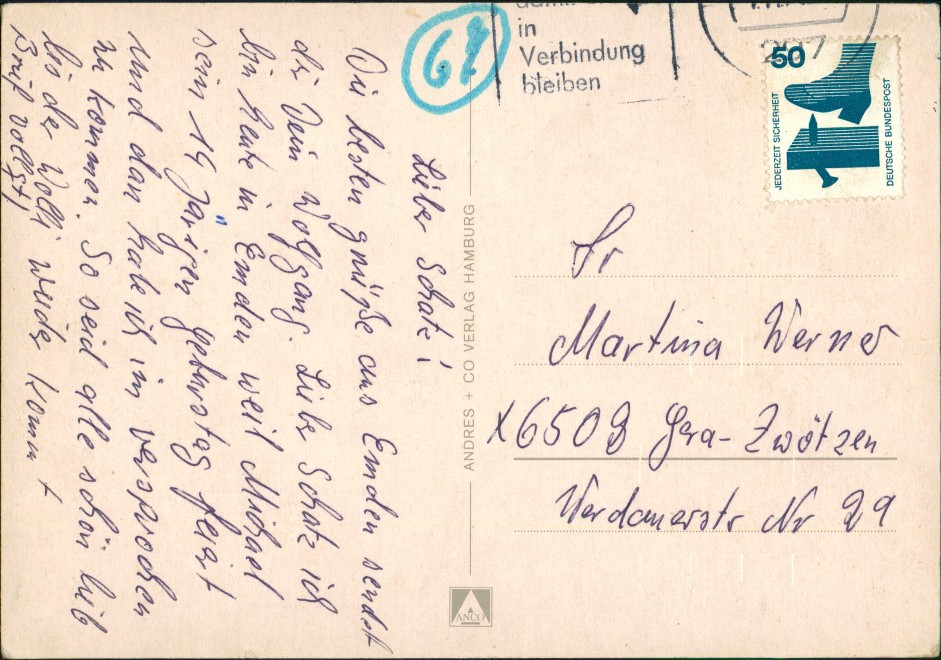 Liber Schatz!
Die besten grüße aus Emden sendet
dir Dein Wolfgang. Liebe Schatz ich
bin heute in Emden weil Michael
sein 14 järigen geburstag feiert
und dan habe ich im versprochen
zu kommen. So seid alle schön lieb
bis de Wolli wieder komm t
Brief vollgst,
67
in
Verbindung
bleiben
50
JEDERZEIT SICHERHEIT
DEUTSCHE BUNDESPOST
Fr
Martina Werner
X6508 Gera-Zwötzen
Werdauerstr Nr 29
ANDRES + CO VERLAG HAMBURG
ANCO